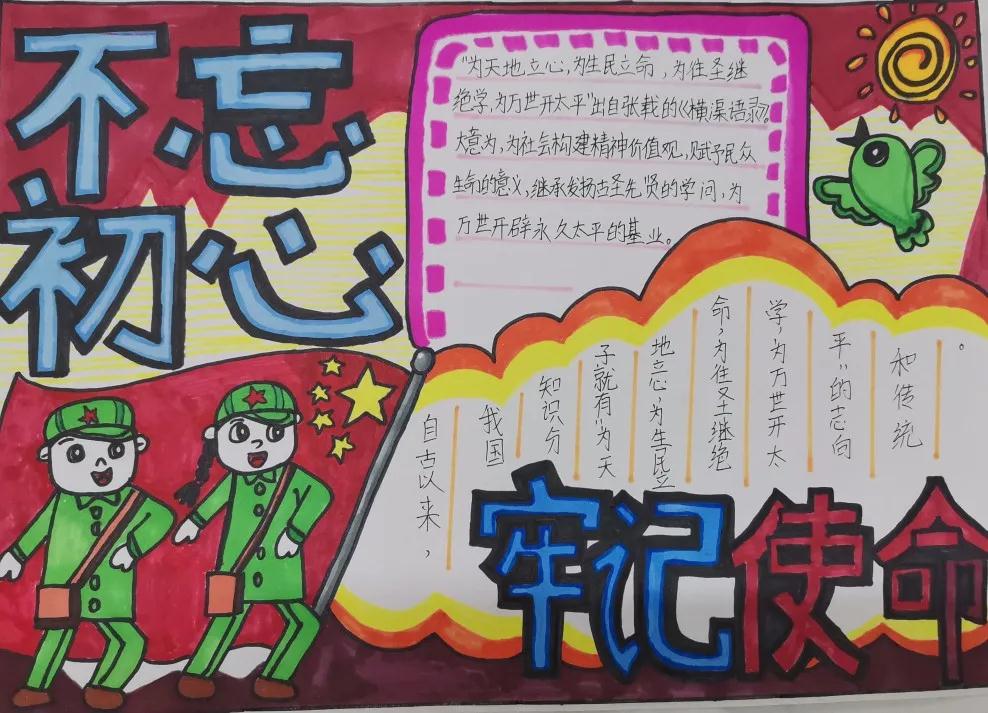 不忘
初心
"为天地立心,为生民立命,为往圣继
绝学,为万世开太平"出自张载的《横渠语录》。
大意为,为社会构建精神价值观,赋予民众
生命的意义,继承发扬古圣先贤的学问,为
万世开辟永久太平的基业。
自古以来,
我国
知识分
子就有"为天
地立心,为生民立
命,为往圣继绝
学,为万世开太
平"的志向
和传统
。
牢记使命